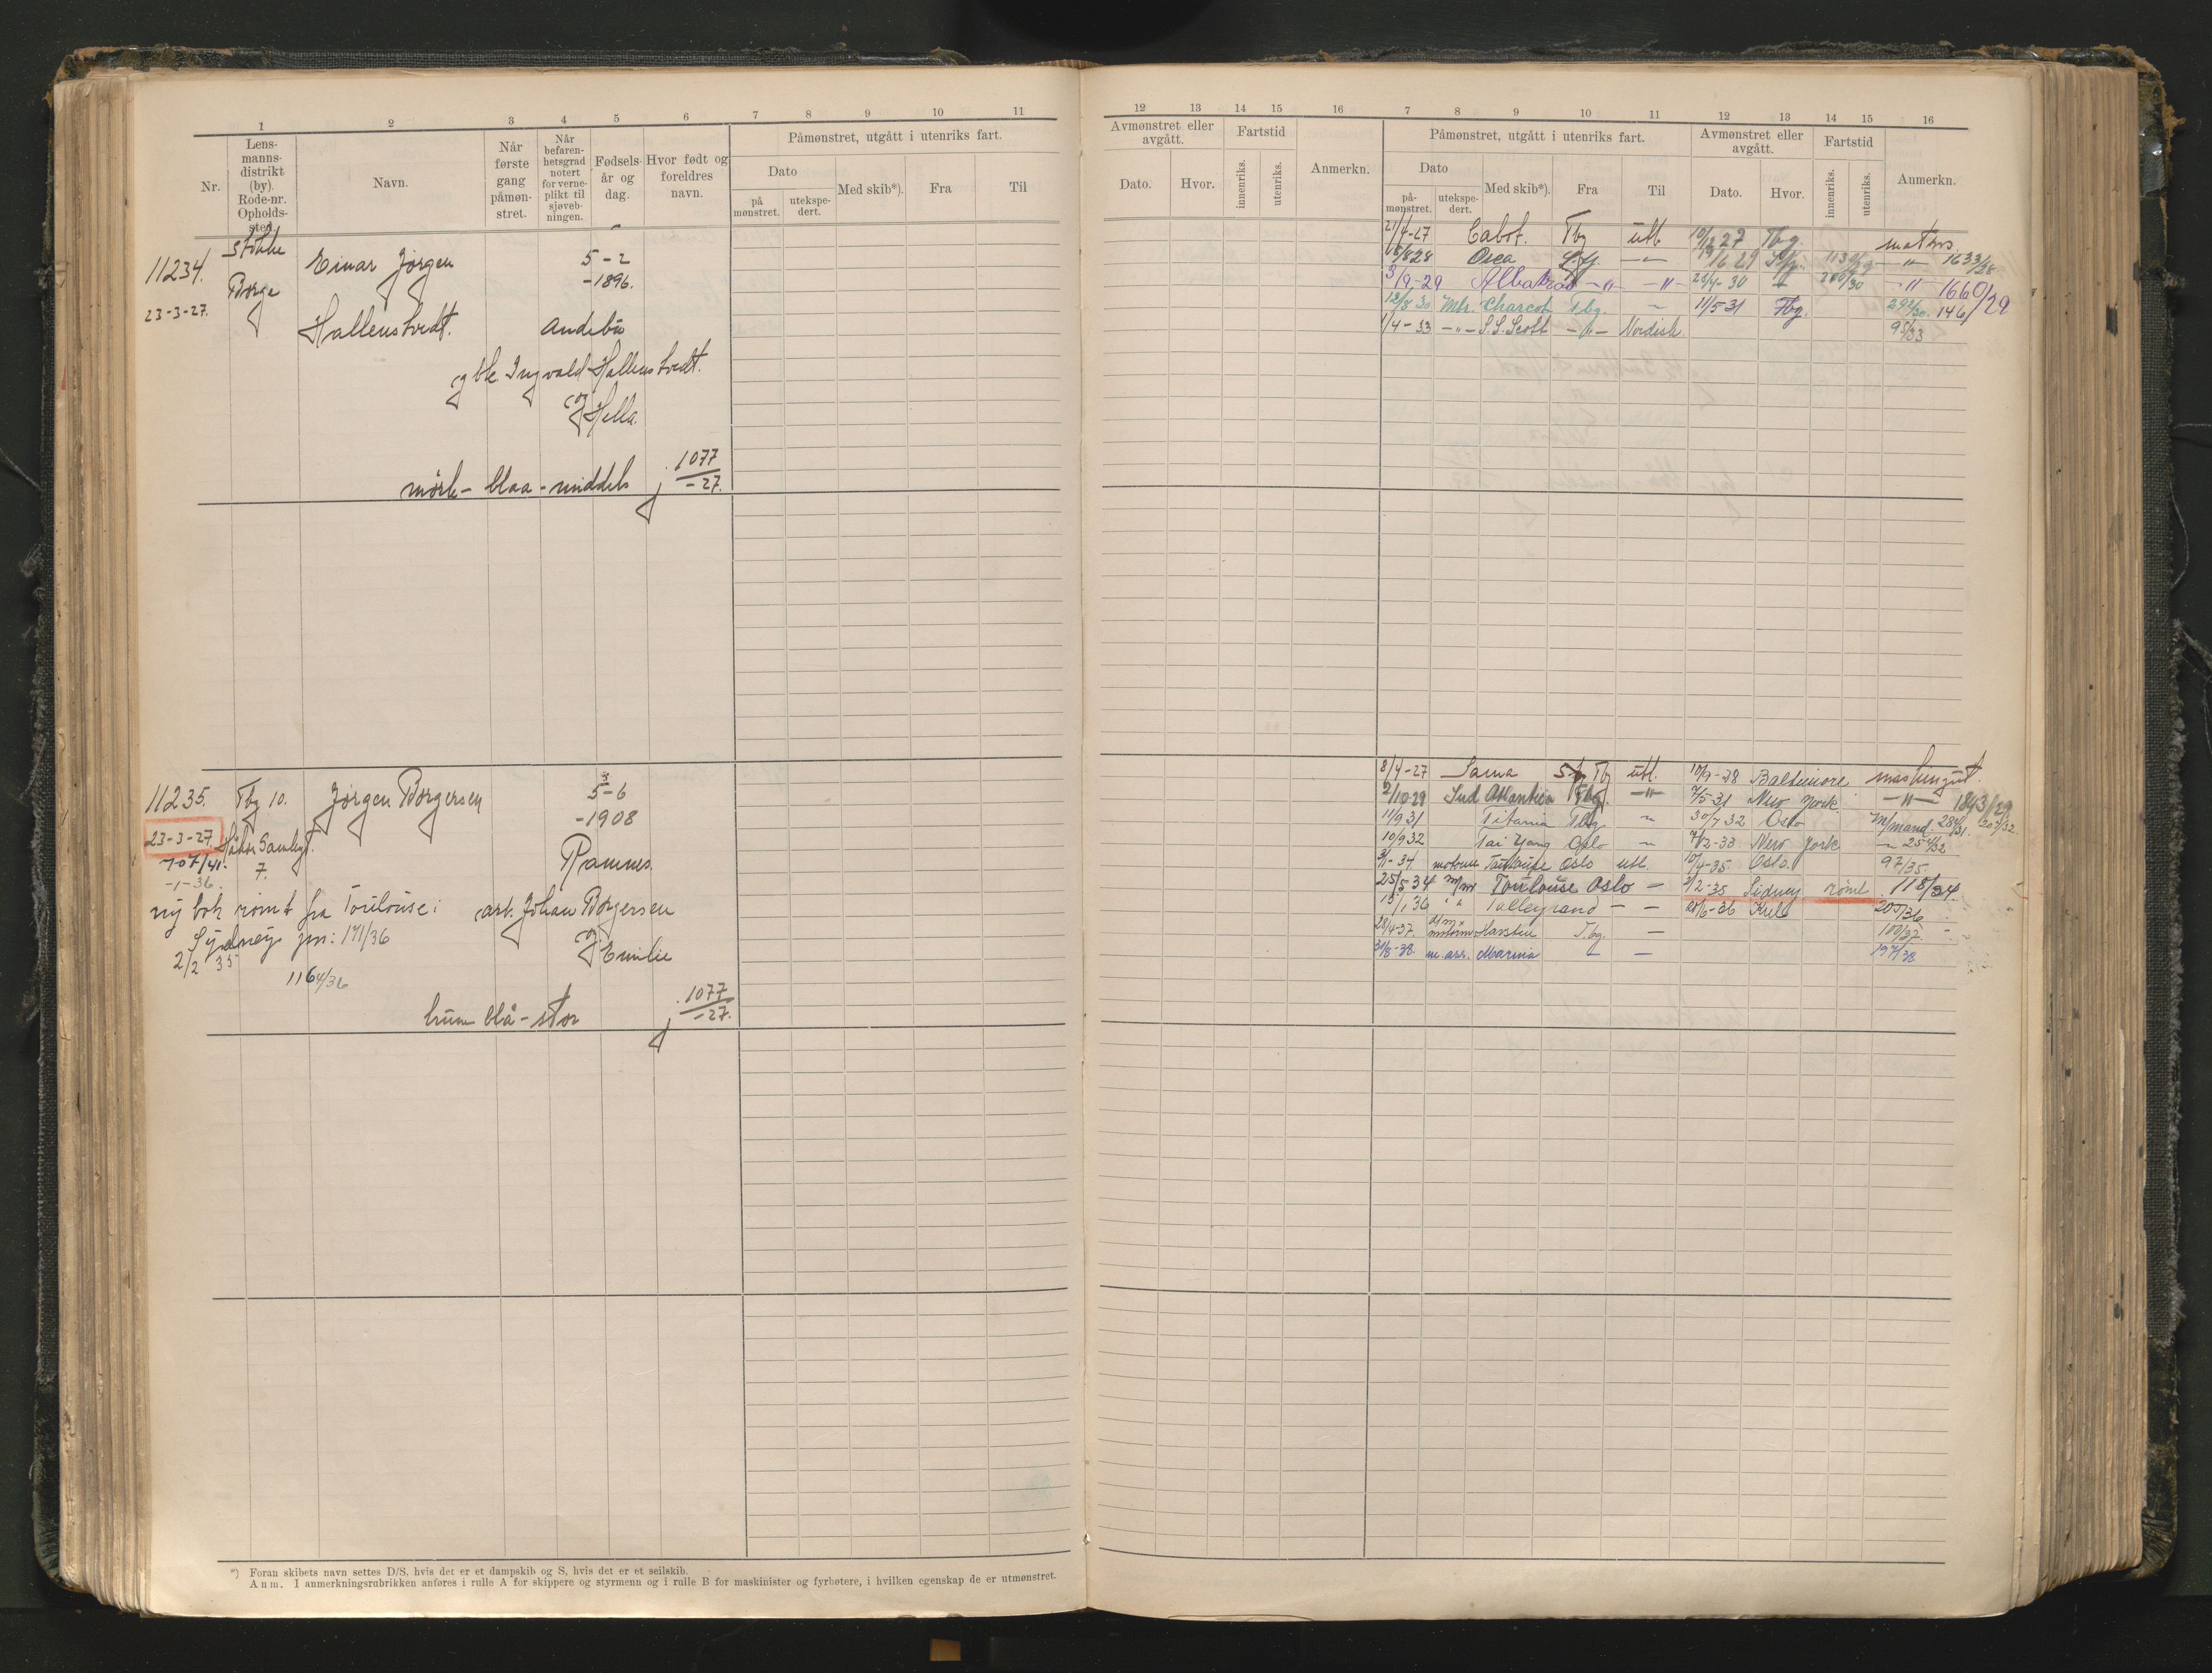 1 2 3 4 5 6 7 8 9 10 11
Nr.
Lens-
manns-
distrikt
(by).
Rode-nr.
Opholds-
sted.
Navn.
Når
første
gang
påmøn-
stret.
Når
befaren-
hetsgrad
notert
for verne-
plikt til
sjøveb-
ningen.
Fødsels-
år og
dag.
Hvor født og
foreldres
navn.
Påmønstret, utgått i utenriks fart.
Dato
på
mønstret.
utekspe-
dert.
Med skib*).
Fra
Til
11234. Stokke Einar Jørgen 5-2
-1896.
23-3-27. Borge
Hallenstvedt. Andebu
gbr. Ingvald Hallenstvedt.
og Hella.
mørk - blaa - middels j. 1077/-27.
11235. Tbg 10. Jørgen Borgersen 5-6
-1908
23-3-27.
707/41. 7. Ramnes.
-1-36.
ny bok rømt fra Toulouse i arb. Johan Borgersen
Sydney jnr: 171/36 og Emilie
2/2 35
1164/36
brun blå - stor j. 1077/-27.
*) Foran skibets navn settes D/S, hvis det er et dampskib og S, hvis det er et seilskib.
Anm. I anmerkningsrubrikken anføres i rulle A for skippere og styrmenn og i rulle B for maskinister og fyrbøtere, i hvilken egenskap de er utmønstret.
12 13 14 15 16 7 8 9 10 11 12 13 14 15 16
Avmønstret eller
avgått.
Dato.
Hvor.
Fartstid
innenriks.
utenriks.
Anmerkn.
Påmønstret, utgått i utenriks fart.
Dato
på-
mønstret.
utekspe-
dert.
Med skib*).
Fra
Til
Avmønstret eller
avgått.
Dato.
Hvor.
Fartstid
innenriks.
utenriks.
Anmerkn.
21/4-27 Cabot. Tbg utl 10/12 27 Tbg. matros
16/8 28 Orca -"- /6 29 -"- 1633/28
3/9-29 Albatros -"- -"- 23/4-30 200/30 -"- 1660/29
12/8 30 Mbr. Charcot Tbg. - 11/5 31 Tbg. 292/30. 146/
1/4-33 -"- S.S. Scott -"- Nordish. 95/33
8/4-27 Sama Tbg utl. 10/9-28 Baltimore maskingut.
2/10 29 Sud Atlantico Tbg. -"- 7/5 31 New York. -"- 1893/29
11/9 31 Titania Tbg. - 30/7 32 Oslo M/mand. 284/31. 207/32.
10/9 32 Tai Yang Oslo - 7/2-33 New York - 254/32
3/1-34 motorm Toulouse Oslo utl. 10/4-35 Oslo. 97/35
25/5 34 m/m Toulouse Oslo - 2/2-35 Sidney rømt 118/34.
15/1 36 " " Talleyrand - - 20/6-36 205/36
28/4-37. motorm Havsten Tbg. - 100/37.
31/8-38. m.ass. Marina - - 197/38